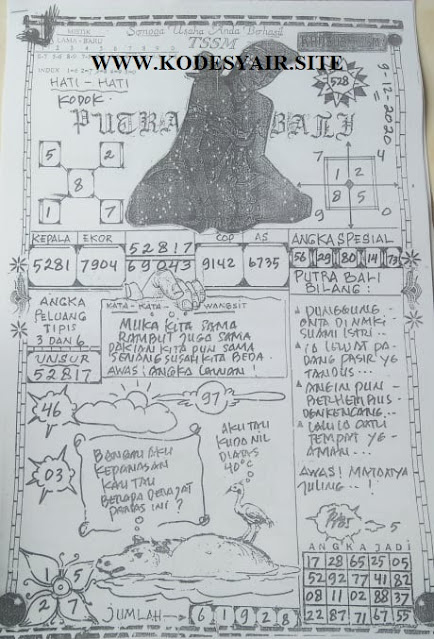 Semoga Usaha Anda Berhasil
TSSM
MISTIK
LAMA - BARU
WWW.KODESYAIR.SITE
HATI - HATI
KODOK
528
9-12-2020
PUTRA BALI
5 2
8
1 7
7 4
1 2
8 5
9 0
KEPALA EKOR 52817 COP AS ANGKA SPESIAL
5281 7904 69043 9142 6735
56 29 80 14 73
ANGKA
PELUANG
TIPIS
3 DAN 6
UNSUR
52817
KATA - KATA WANGSIT
MUKA KITA SAMA
RAMBUT JUGA SAMA
PAKIAN KITA PUN SAMA
SENANG SUSAH KITA BEDA
AWAS! ANGKA LAWAN!
PUTRA BALI
BILANG:
PUNGGUNG
ONTA DINAIKI
SUAMI ISTRI..
IA LEWAT PA-
DANG PASIR YG
TANDUS...
ANGIN PUN
BERHEMBUS
DENKENCANG..
LALU IA CARI
TEMPAT YG-
AMAN...
AWAS! MATANYA
JULING..!
46
97
03
BANGAU: AKU
KEPANASAN
KAU TAU
BERAPA DERAJAT
PANAS INI?
AKU TAU
KUDO NIL
DIATAS
40°C
5
ANGKA JADI
17 28 65 25 05
52 92 77 41 82
08 11 02 88 37
22 87 71 67 55
1 5
2 7
JUMLAH 6 1 9 2 8